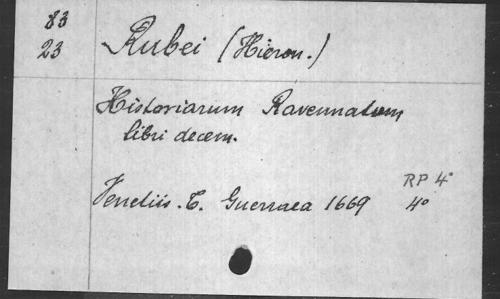 83
23
Rubei (Hieron.)
Historiarum Ravennatum
libri decem.
RP 4°
Venetiis. T. Guerraea 1669 4°